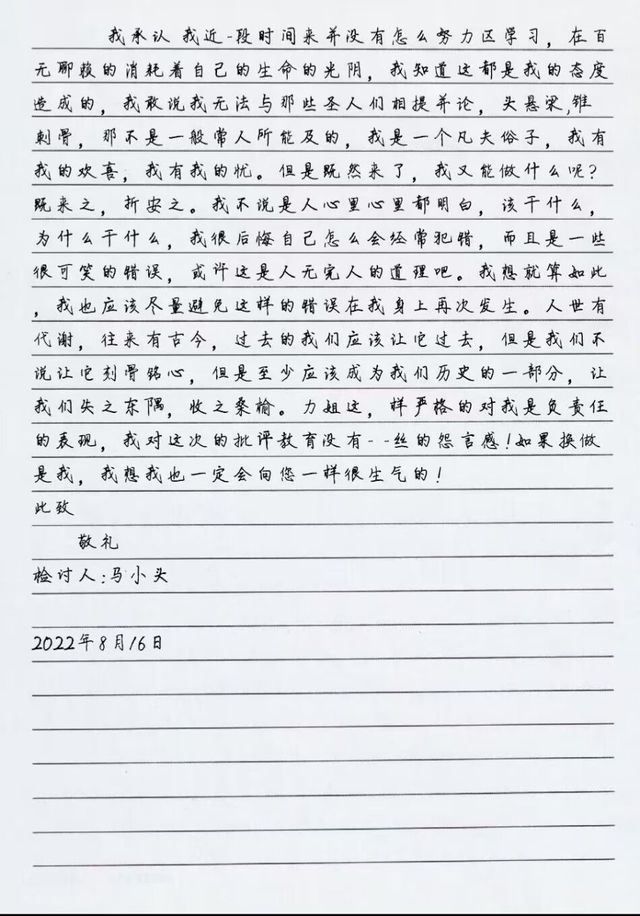 我承认 我近-段时间来并没有怎么努力区学习，在百
无聊赖的消耗着自己的生命的光阴，我知道这都是我的态度
造成的，我敢说我无法与那些圣人们相提并论，头悬梁,锥
刺骨，那不是一般常人所能及的，我是一个凡夫俗子，我有
我的欢喜；我有我的忧。但是既然来了，我又能做什么呢？
既来之，折安之。我不说是人心里心里都明白，该干什么，
为什么干什么，我很后悔自己怎么会经常犯错，而且是一些
很可笑的错误，或许这是人无完人的道理吧。我想就算如此
，我也应该尽量避免这样的错误在我身上再次发生。人世有
代谢，往来有古今，过去的我们应该让它过去，但是我们不
说让它刻骨铭心，但是至少应该成为我们历史的一部分，让
我们失之东隅，收之桑榆。力姐这，样严格的对我是负责任
的表现，我对这次的批评教育没有--丝的怨言感！如果换做
是我，我想我也一定会向您一样很生气的！
此致
敬礼
检讨人：马小头
2022年8月16日